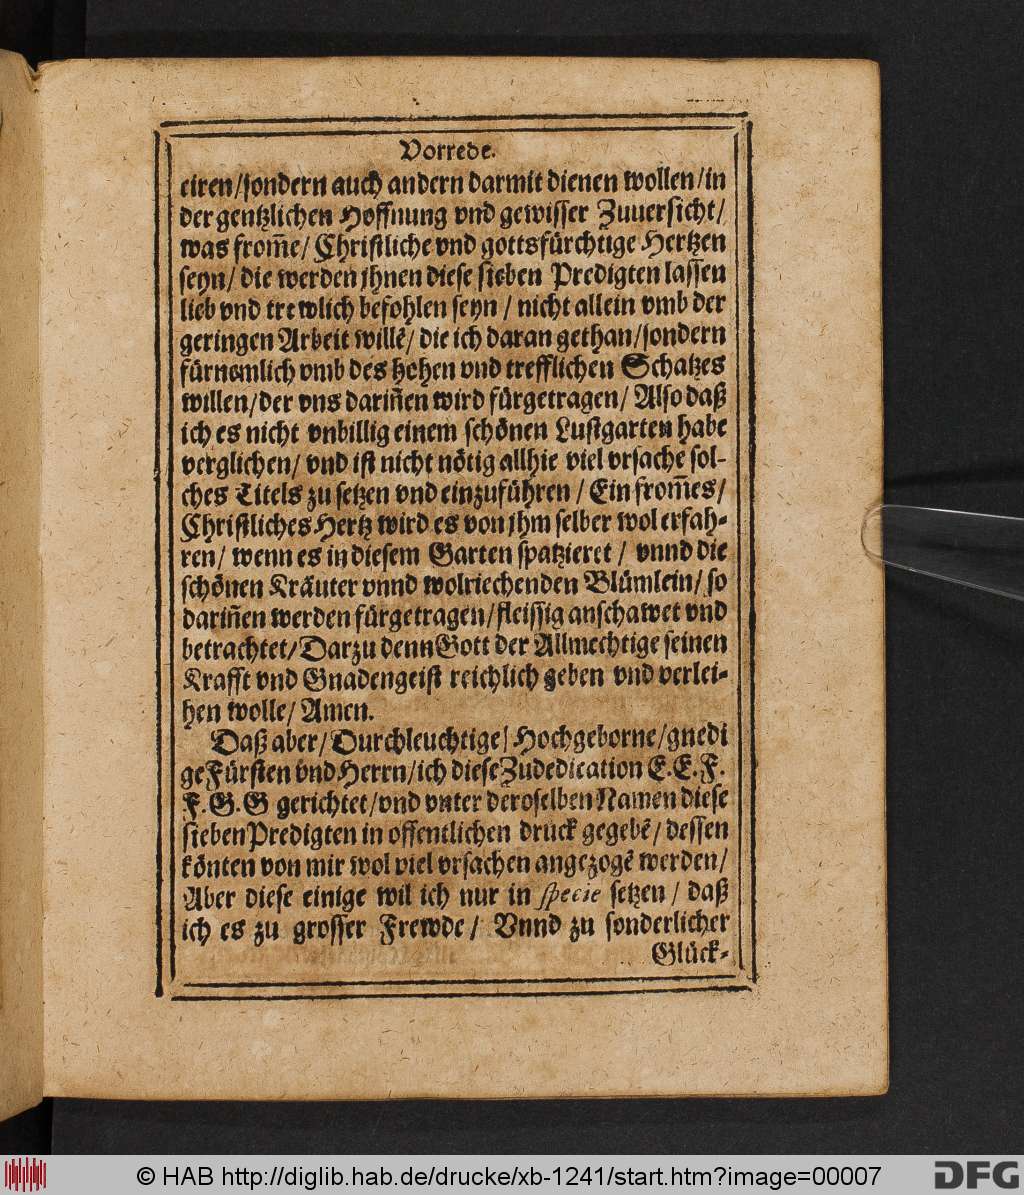 Vorrede.
eiren/sondern auch andern darmit dienen wollen/in
der gentzlichen Hoffnung vnd gewisser Zuuersicht/
was from̃e/ Christliche vnd gottsfürchtige Hertzen
seyn/ die werden jhnen diese sieben Predigten lassen
lieb vnd trewlich befohlen seyn / nicht allein vmb der
geringen Arbeit willẽ/ die ich daran gethan/sondern
fürnemlich vmb des hohen vnd trefflichen Schatzes
willen/der vns dariñen wird fürgetragen/ Also daß
ich es nicht vnbillig einem schönen Lustgarten habe
verglichen/ vnd ist nicht nötig allhie viel vrsache sol-
ches Titels zu setzen vnd einzuführen / Ein from̃es/
Christliches Hertz wird es von jhm selber wol erfah-
ren/ wenn es in diesem Garten spatzieret / vnnd die
schönen Kräuter vnnd wolriechenden Blümlein/ so
dariñen werden fürgetragen/fleissig anschawet vnd
betrachtet/Darzu denn Gott der Allmechtige seinen
Krafft vnd Gnadengeist reichlich geben vnd verlei-
hen wolle/ Amen.
Daß aber/ Durchleuchtige/ Hochgeborne/gnedi
ge Fürsten vnd Herrn/ich diese Zudedication E. E. F.
F. G. G gerichtet/vnd vnter deroselben Namen diese
sieben Predigten in offentlichen druck gegebẽ/ dessen
könten von mir wol viel vrsachen angezogẽ werden/
Aber diese einige wil ich nur in specie setzen/ daß
ich es zu grosser Frewde/ Vnnd zu sonderlicher
Glück-
© HAB http://diglib.hab.de/drucke/xb-1241/start.htm?image=00007
DFG